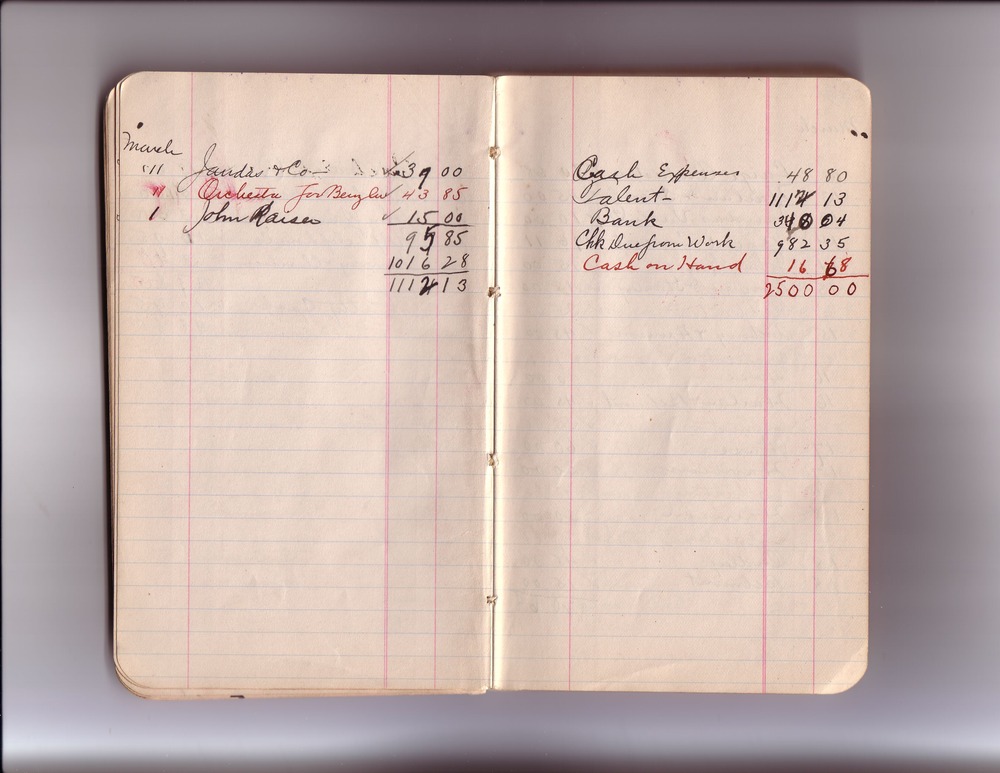 March
"11 Jandas & Co 37 00
" Orchestra for 43 85
1 John Kaiser 15 00
95 85
1016 28
1112 13
Cash Expenses 48 80
Talent 1112 13
Bank 340 04
Chk Due from Work 982 35
Cash on Hand 16 68
2500 00